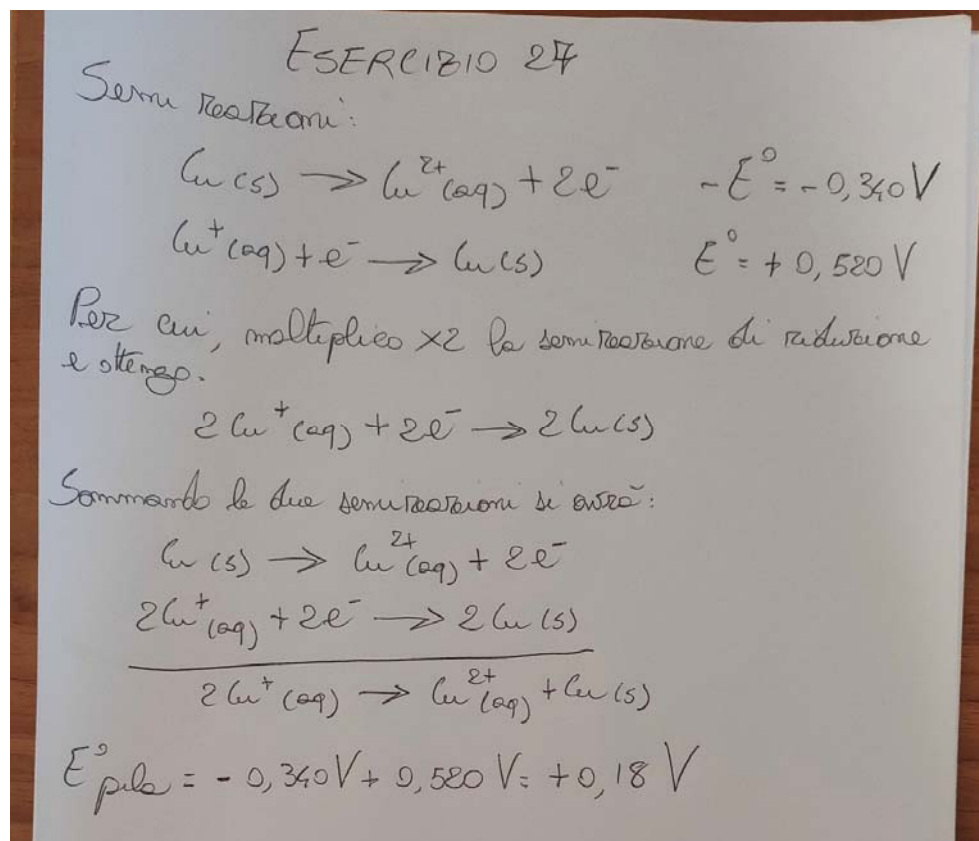 ESERCIZIO 27
Semi reazioni:
Cu (s) → Cu²⁺(aq) + 2e⁻ - E⁰ = - 0,340 V
Cu⁺(aq) + e⁻ → Cu (s) E⁰ = + 0,520 V
Per cui, moltiplico ×2 la semireazione di riduzione
e ottengo.
2 Cu⁺(aq) + 2e⁻ → 2 Cu (s)
Sommando le due semireazioni si avrà:
Cu (s) → Cu²⁺(aq) + 2e⁻
2Cu⁺(aq) + 2e⁻ → 2 Cu (s)
2 Cu⁺(aq) → Cu²⁺(aq) + Cu (s)
E⁰pila = - 0,340 V + 0,520 V = + 0,18 V